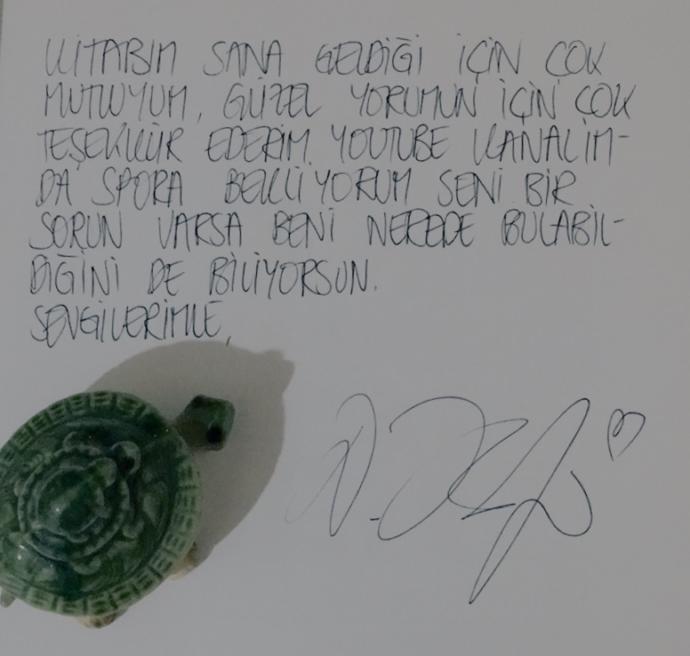 KİTABIM SANA GELDİĞİ İÇİN ÇOK
MUTLUYUM, GÜZEL YORUMUN İÇİN ÇOK
TEŞEKKÜR EDERİM. YOUTUBE KANALIM-
DA SPORA BEKLİYORUM SENİ BİR
SORUN VARSA BENİ NEREDE BULABİL-
DİĞİNİ DE BİLİYORSUN.
SEVGİLERİMLE,